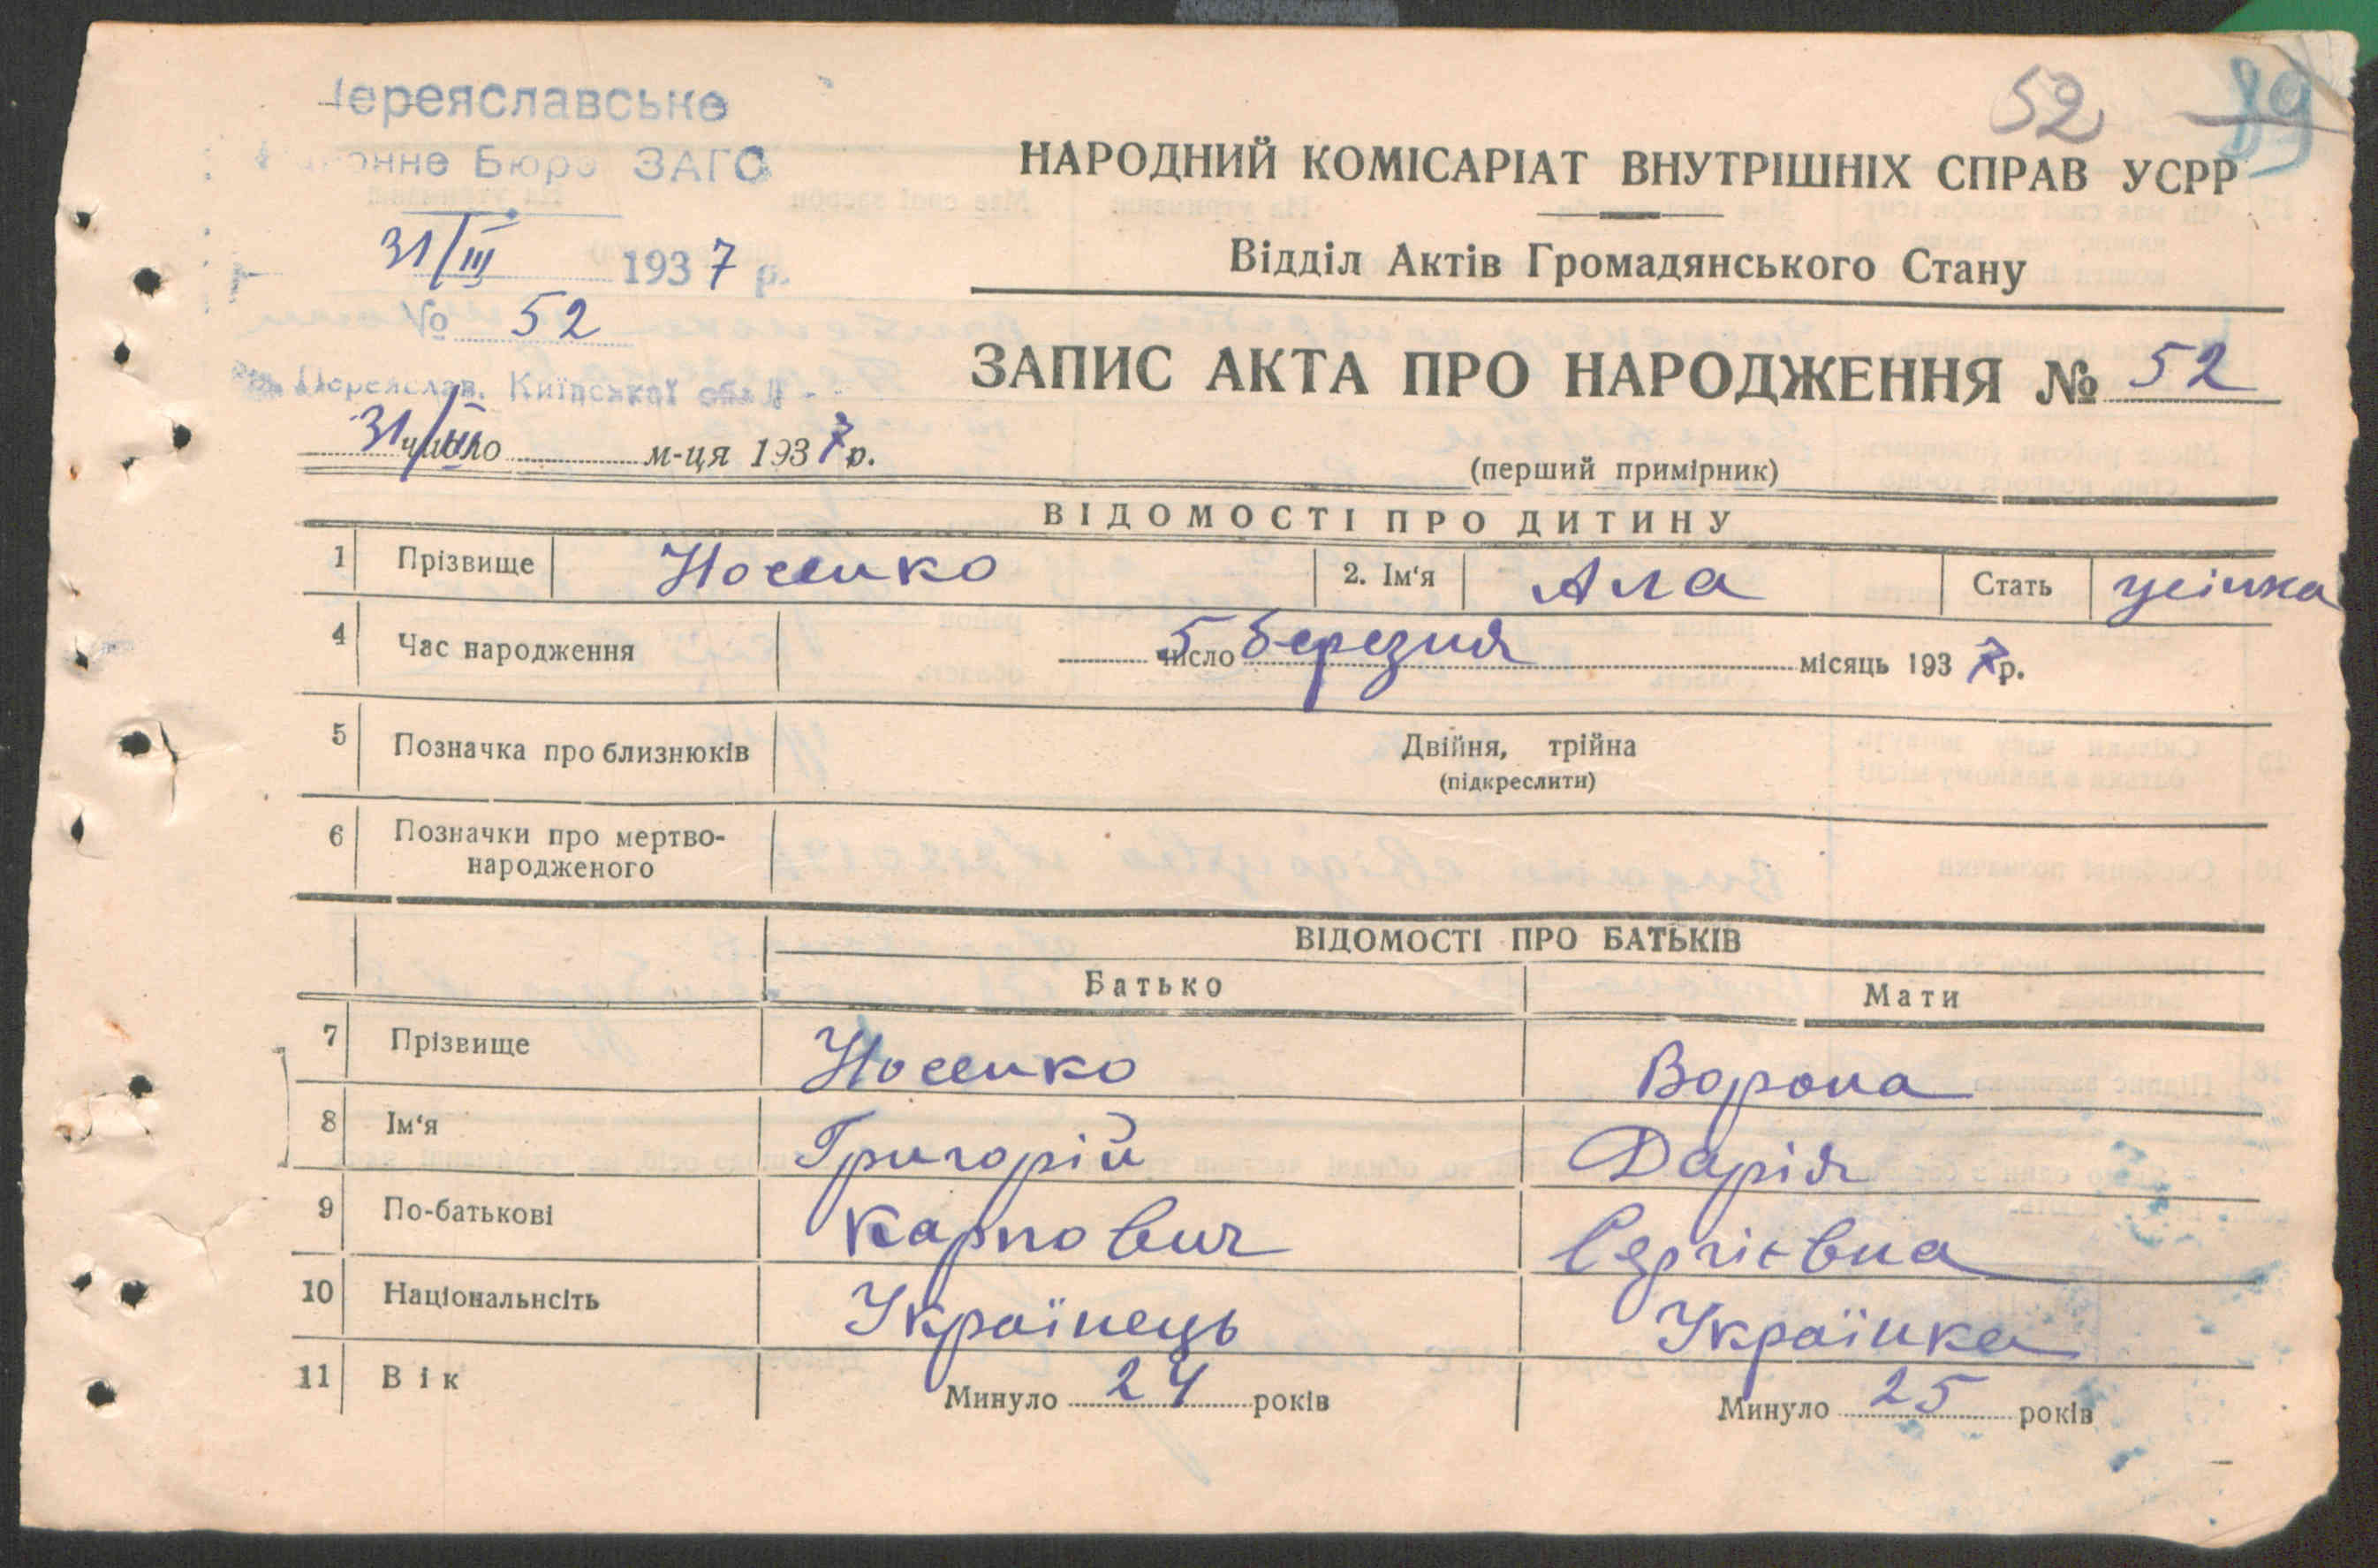 52 89
ереяславське
онне Бюро ЗАГС
31/III 1937 р.
№ 52
Переяслав, Київської обл.
31/III число м-ця 1937 р.
НАРОДНИЙ КОМІСАРІАТ ВНУТРІШНІХ СПРАВ УСРР
Відділ Актів Громадянського Стану
ЗАПИС АКТА ПРО НАРОДЖЕННЯ № 52
(перший примірник)
ВІДОМОСТІ ПРО ДИТИНУ
1 Прізвище Носенко 2. Ім'я Ала Стать жінка
4 Час народження 5 число березня місяць 1937 р.
5 Позначка про близнюків Двійня, трійна
(підкреслити)
6 Позначки про мертво-
народженого
ВІДОМОСТІ ПРО БАТЬКІВ
Батько Мати
7 Прізвище Носенко Ворона
8 Ім'я Григорій Дарія
9 По-батькові Карпович Сергієвна
10 Національнсіть Українець Українка
11 Вік Минуло 24 років Минуло 25 років